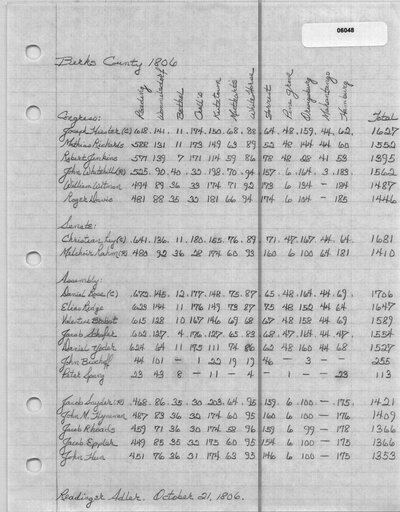 06048
Berks County 1806
Reading Womelsdorf Bethel Kutztown White Horse Pine Grove Orwigsburg Mahantongo Hamburg
Congress: Total
Joseph Hiester (C) 618. 141. 11. 174. 150. 68. 88. 64. 48. 159. 44. 62. 1627
Mathias Richards 588 131 11 173 149 63 89 52 48 144 44 60 1552
Robert Jenkins 571 139 7 171 114 59 86 78 48 28 41 53 1395
John Whitehill (R) 525. 90. 40. 35. 198. 70. 94 157. 6. 164. 3. 183. 1562
William Witman 494 89 36 33 174 71 92 173 6 134 - 184 1487
Roger Davis 481 88 35 30 181 66 94 174 6 104 - 185 1446
Senate:
Christian Ley (C) 641. 136. 11. 180. 155. 76. 89. 71. 47. 167. 44. 64. 1681
Melchior Rahm (R) 480 92 36 28 174 60 93 160 6 100 64 181 1410
Assembly:
Daniel Rose (C) 672. 145. 12. 177. 148. 75. 87 65. 48. 164. 44. 69. 1706
Elias Redge 623 144 11 176 149 73 87 75 48 152 44 64 1647
Valentine Probst 615 128 10 167 146 69 68 67 48 158 44 69 1589
Jacob Schafer 603. 137. 4. 176. 127. 65. 83 68. 47. 164. 44. 47. 1554
Daniel Yoder 624 64 11 175 111 74 86 62 48 160 44 68 1527
John Bischoff 44 101 - 1 22 19 19 46 - 3 - - 255
Peter Spang 23 43 8 - 11 - 4 - 1 - - 23 113
Jacob Snyder (R) 468. 86. 35. 30. 203. 64. 95. 159. 6. 100. - 175. 1421
John M. Hyneman 487 83 36 30 174 60 95 160 6 100 - 176 1409
Jacob Rhoads 459 71 36 30 174 58 96 159 6 99 - 178 1366
Jacob Eppler 449 85 35 35 175 60 95 154 6 100 - 175 1366
John Hain 451 76 36 31 174 63 95 146 6 100 - 175 1353
Readinger Adler. October 21, 1806.